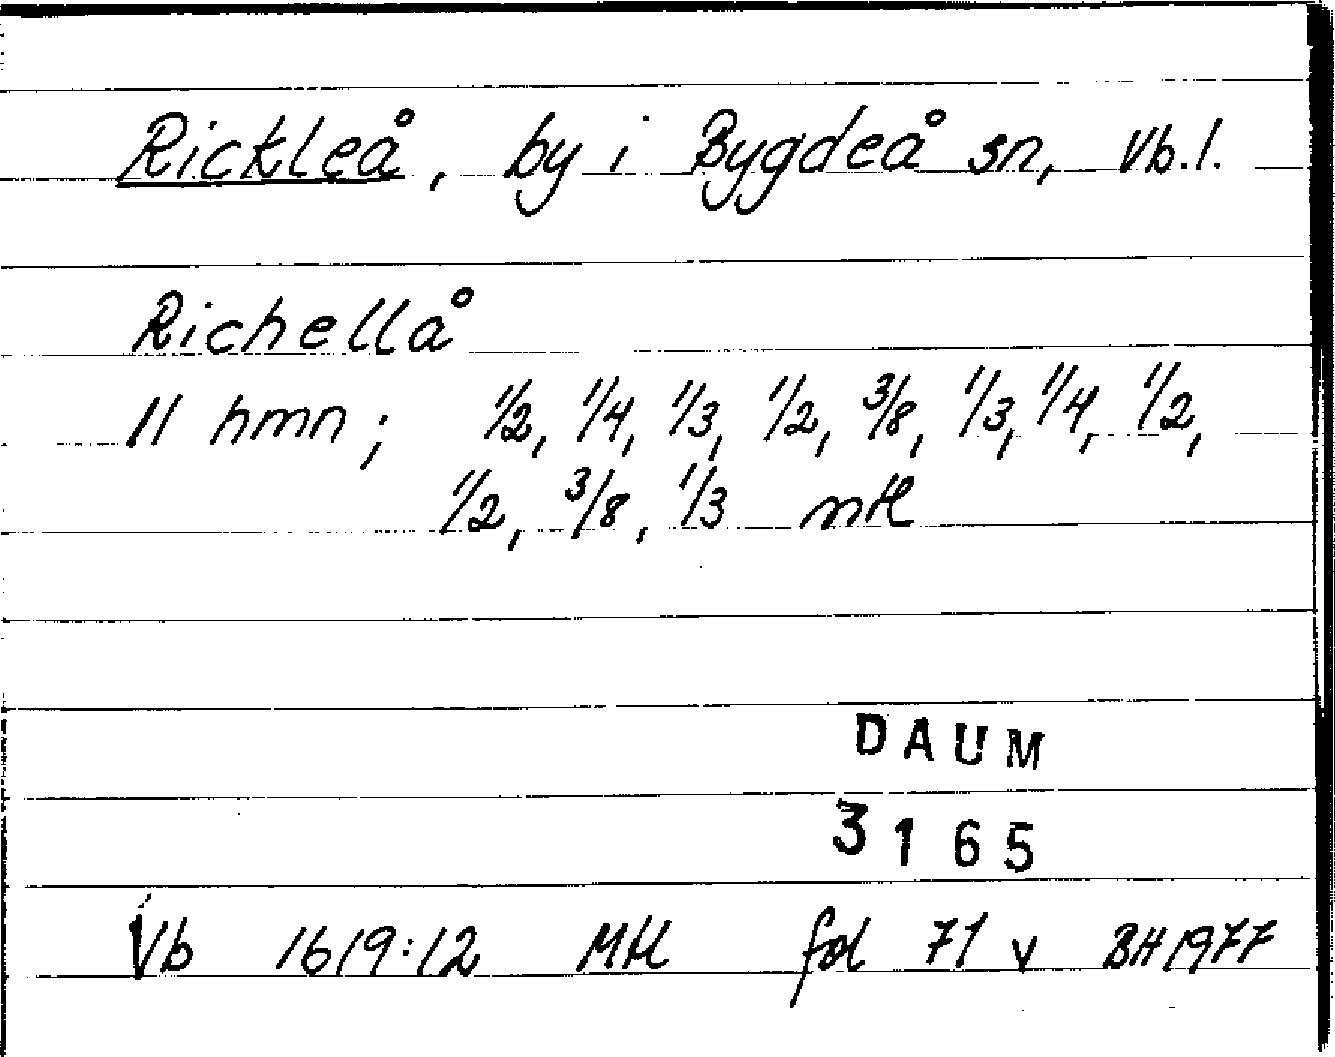 Rickleå, by i Bygdeå sn, Vb.l.
Richellå
11 hmn; 1/2, 1/4, 1/3, 1/2, 3/8, 1/3, 1/4, 1/2,
1/2, 3/8, 1/3 mtl
DAUM
3165
Vb 1619:12 Mtl fol 71 v BH 1977